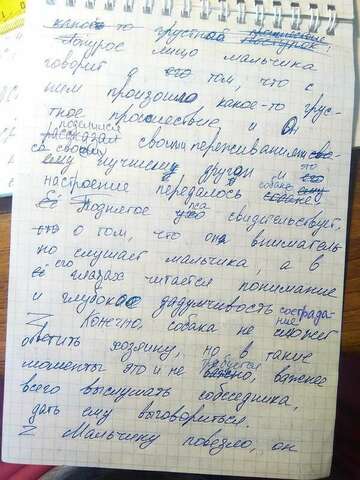 какого-то грустной
Понурое лицо мальчика
говорит о его том, что с
ним произошло какое-то грус-
тное происшествие и он
поделился
рассказал своими переживаниями сво-
со своему лучшему другом и это его
настроение передалось собаке ему собаке
Её Поднятое пса ухо свидетельствует,
что о том, что она вниматель
но слушает мальчика, а в
её его глазах читается понимание
и глубокое задумчивость сострада-
ние
Z Конечно, собака не сможет
ответить хозяину, но в такие
моменты это и не требуется важно, важнее
всего выслушать собеседника,
дать ему выговориться.
Z Мальчику повезло, он